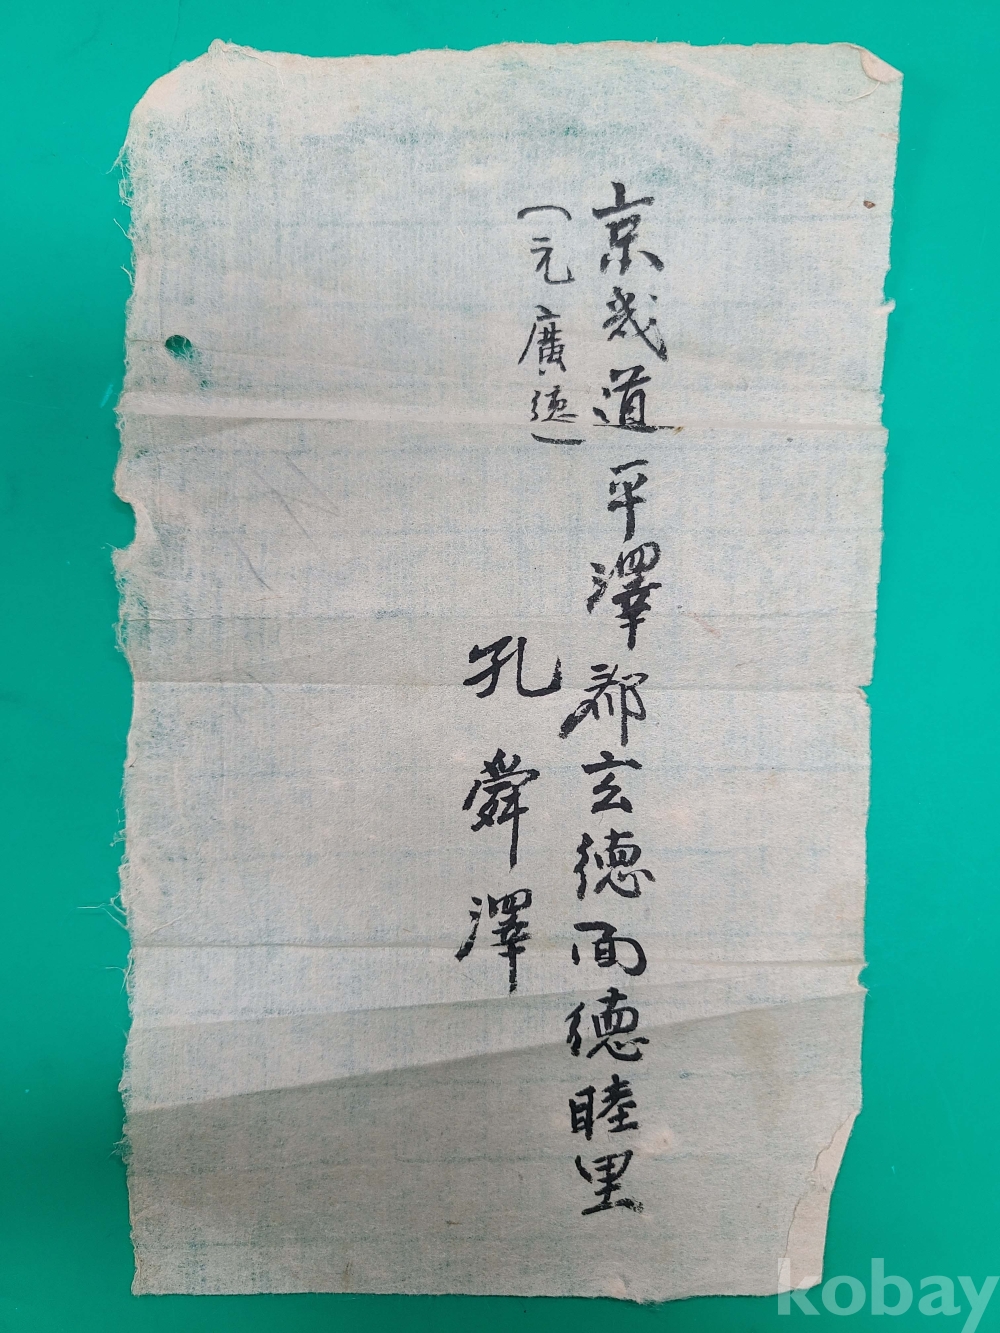 京畿道平澤郡玄德面德睦里
(元廣德)
孔舜澤
kobay